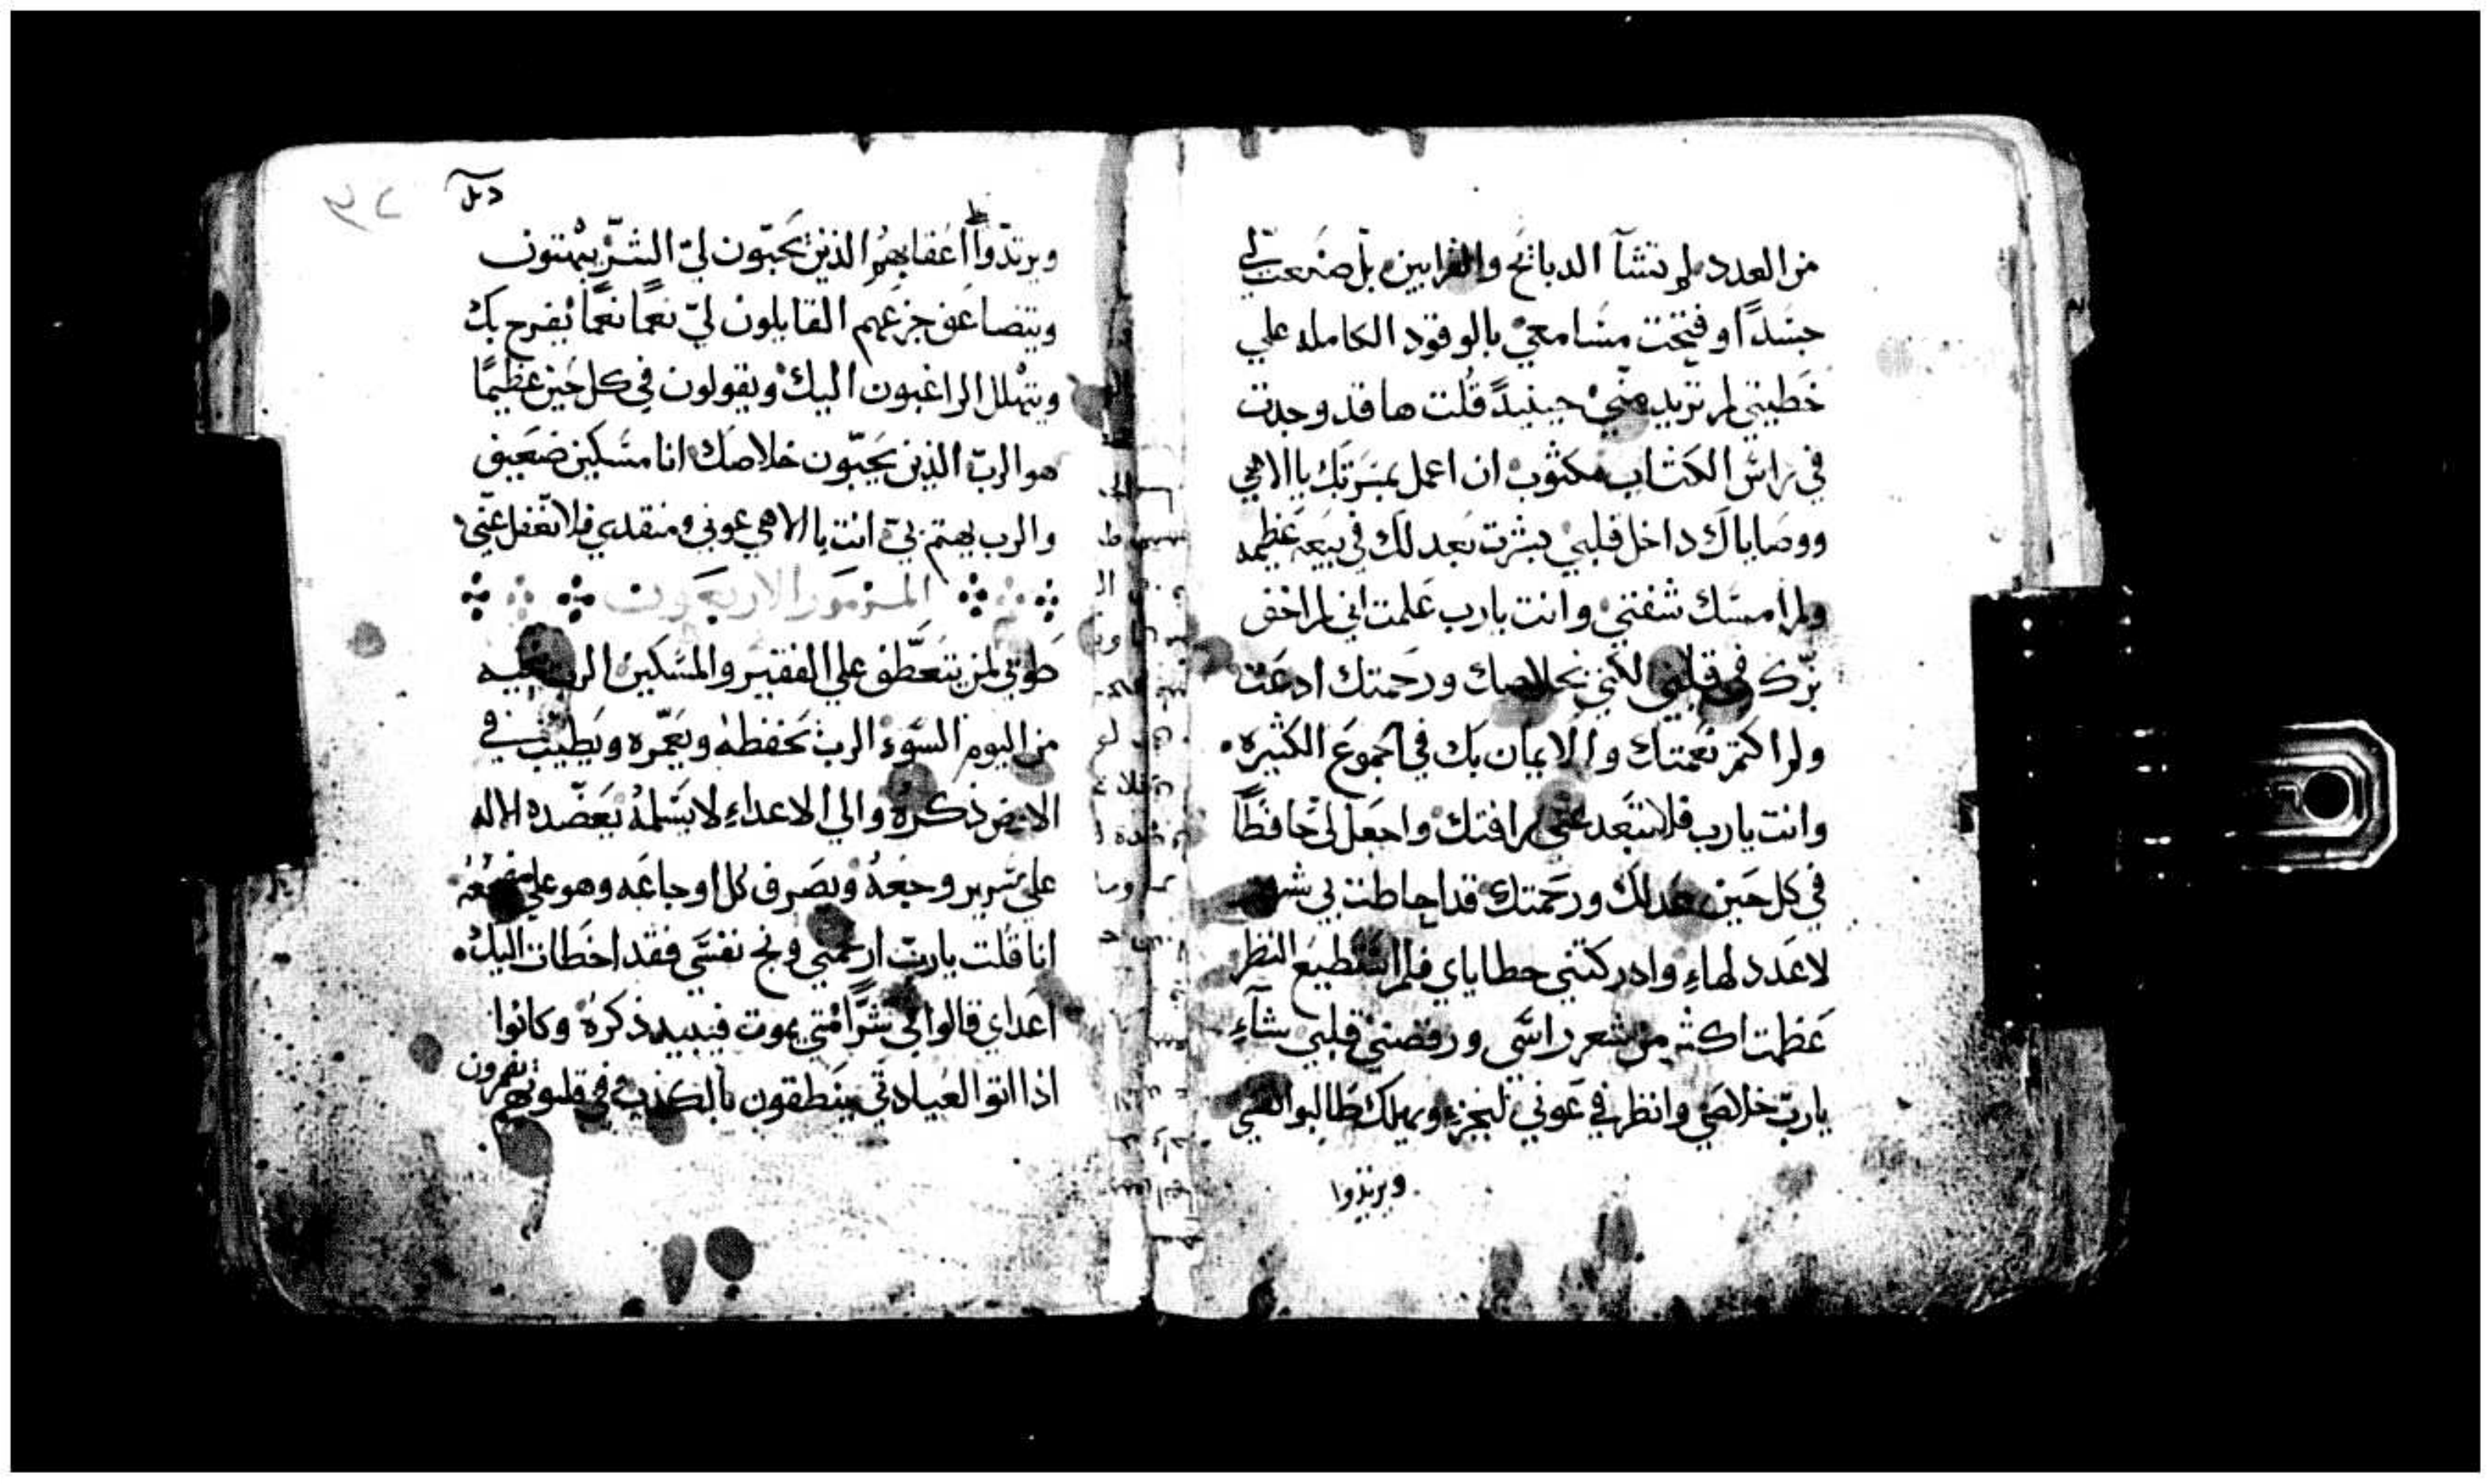 من العدد لم تشآ الدبائح والقرابين بل صنعت لي
جسداً وفتحت مسامعي بالوقود الكامله علي
خطيتي لم تريد مني حينيدً قلت ها قد وجدت
في راس الكتاب مكتوب ان اعمل بمسرتك يا الاهي
ووصاياك داخل قلبي بشرت بعدلك في بيعه عظيمه
ولم امسك شفتي وانت يارب علمت اني لم اخفي
برك في قلبي لكني بخلاصك ورحمتك ادعت
ولم اكتم نعمتك والايمان بك في الجموع الكثيره
وانت يارب فلا تبعد عني رافتك واجعل لي حافظاً
في كل حين عدلك ورحمتك قد احاطت بي شرور
لا عدد لهاءِ وادركتني خطاياي فلم استطيع النظر
عظمت اكثر من شعر راسي ورفضني قلبي بشآءِ
يارب خلاصي وانظر في عوني ليجزء ويهلك طالبوا نفسي
ويرتدوا
ويرتدوا اعقابهم الذين يحبون لي الشر يبهتون
ويتضاعف جزعهم القايلون لي نعما نعما يفرح بك
ويتهلل الراغبون اليك ويقولون في كل حين عظيما
هو الرب الذين يحبون خلاصك انا مسكين ضعيف
والرب يهتم بي انت يا الاهي عوني ومنقدي فلا تغفل عني
المزمور الاربعون
طوبي لمن يتعطف علي الفقير والمسكين الرب ينجيه
من اليوم السوء الرب يحفظه ويعمره ويطيب في
الارض ذكره والي الاعداءِ لا يسلمه يعضده الاله
علي سرير وجعه ويصرف كل اوجاعه وهو علي مضجعه
انا قلت يارب ارحمني ونج نفسي فقد اخطات اليك
اعداي قالوا لي شرا متي يموت فيبيد ذكره وكانوا
اذا اتوا لعيادتي ينطقون بالكذب في قلوبهم